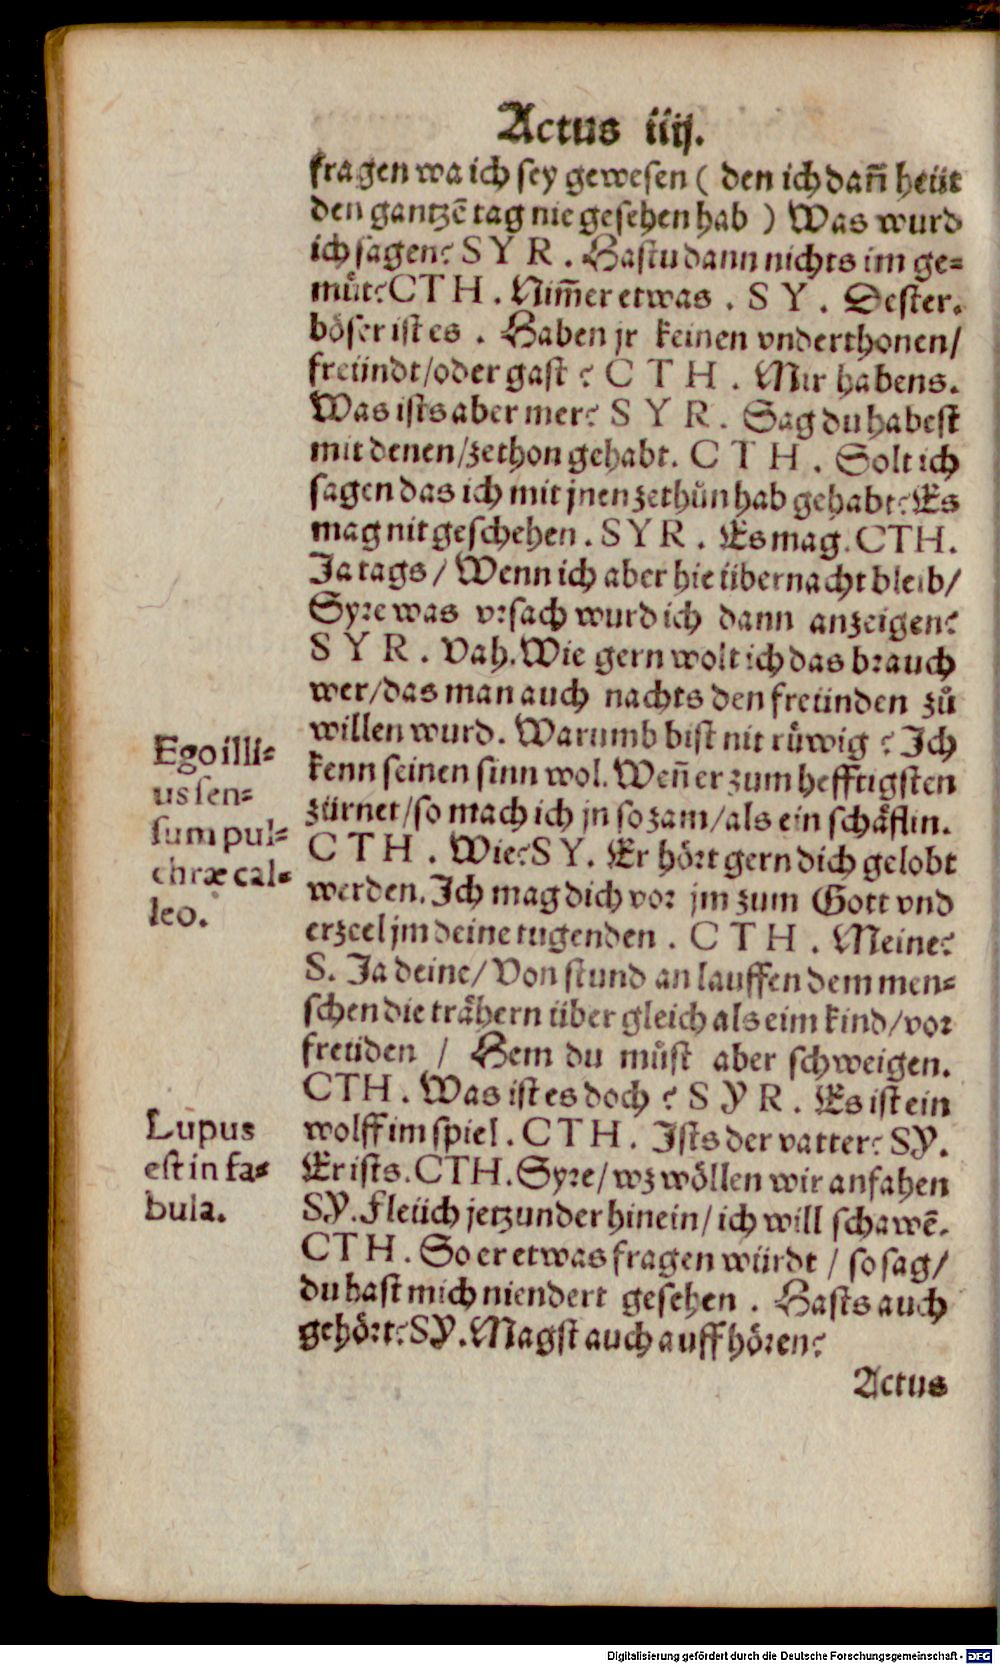 Actus iiij.
fragen wa ich sey gewesen ( den ich dañ heüt
den gantzē tag nie gesehen hab ) Was wurd
ich sagen? S Y R . Hastu dann nichts im ge=
muͤt? CTH . Nim̃er etwas . S Y . Dester.
böser ist es . Haben jr keinen vnderthonen/
freündt/oder gast ? C T H . Mir habens.
Was ists aber mer? S Y R . Sag du habest
mit denen/zethon gehabt. C T H . Solt ich
sagen das ich mit jnen zethůn hab gehabt? Es
mag nit geschehen . SYR . Es mag. CTH.
Ja tags / Wenn ich aber hie übernacht bleib/
Syre was vrsach wurd ich dann anzeigen?
S Y R . Vah. Wie gern wolt ich das brauch
wer/das man auch nachts den freünden zů
willen wurd. Warumb bist nit růwig ? Ich
kenn seinen sinn wol. Weñ er zum hefftigsten
zürnet/so mach ich jn so zam/als ein schäflin.
C T H . Wie? S Y. Er hört gern dich gelobt
werden. Ich mag dich vor jm zum Gott vnd
erzeel jm deine tugenden . C T H . Meine?
S. Ja deine/ Von stund an lauffen dem men=
schen die trähern über gleich als eim kind/vor
freüden / Hem du můst aber schweigen.
CTH . Was ist es doch ? S Y R . Es ist ein
wolff im spiel . C T H . Ists der vatter? SY.
Er ists. CTH. Syre/ wz wöllen wir anfahen
SY. Fleüch jetzunder hinein/ ich will schawē.
CTH . So er etwas fragen würdt / so sag/
du hast mich niendert gesehen . Hasts auch
gehört? SY. Magst auch auffhören?
Actus
Ego illi=
us sen=
sum pul=
chræ cal=
leo.
Lupus
est in fa=
bula.
Digitalisierung gefördert durch die Deutsche Forschungsgemeinschaft - DFG